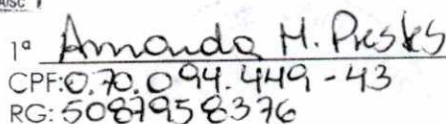 1ª Amanda M. Preskes
CPF: 0.70.094.449-43
RG: 5087958376